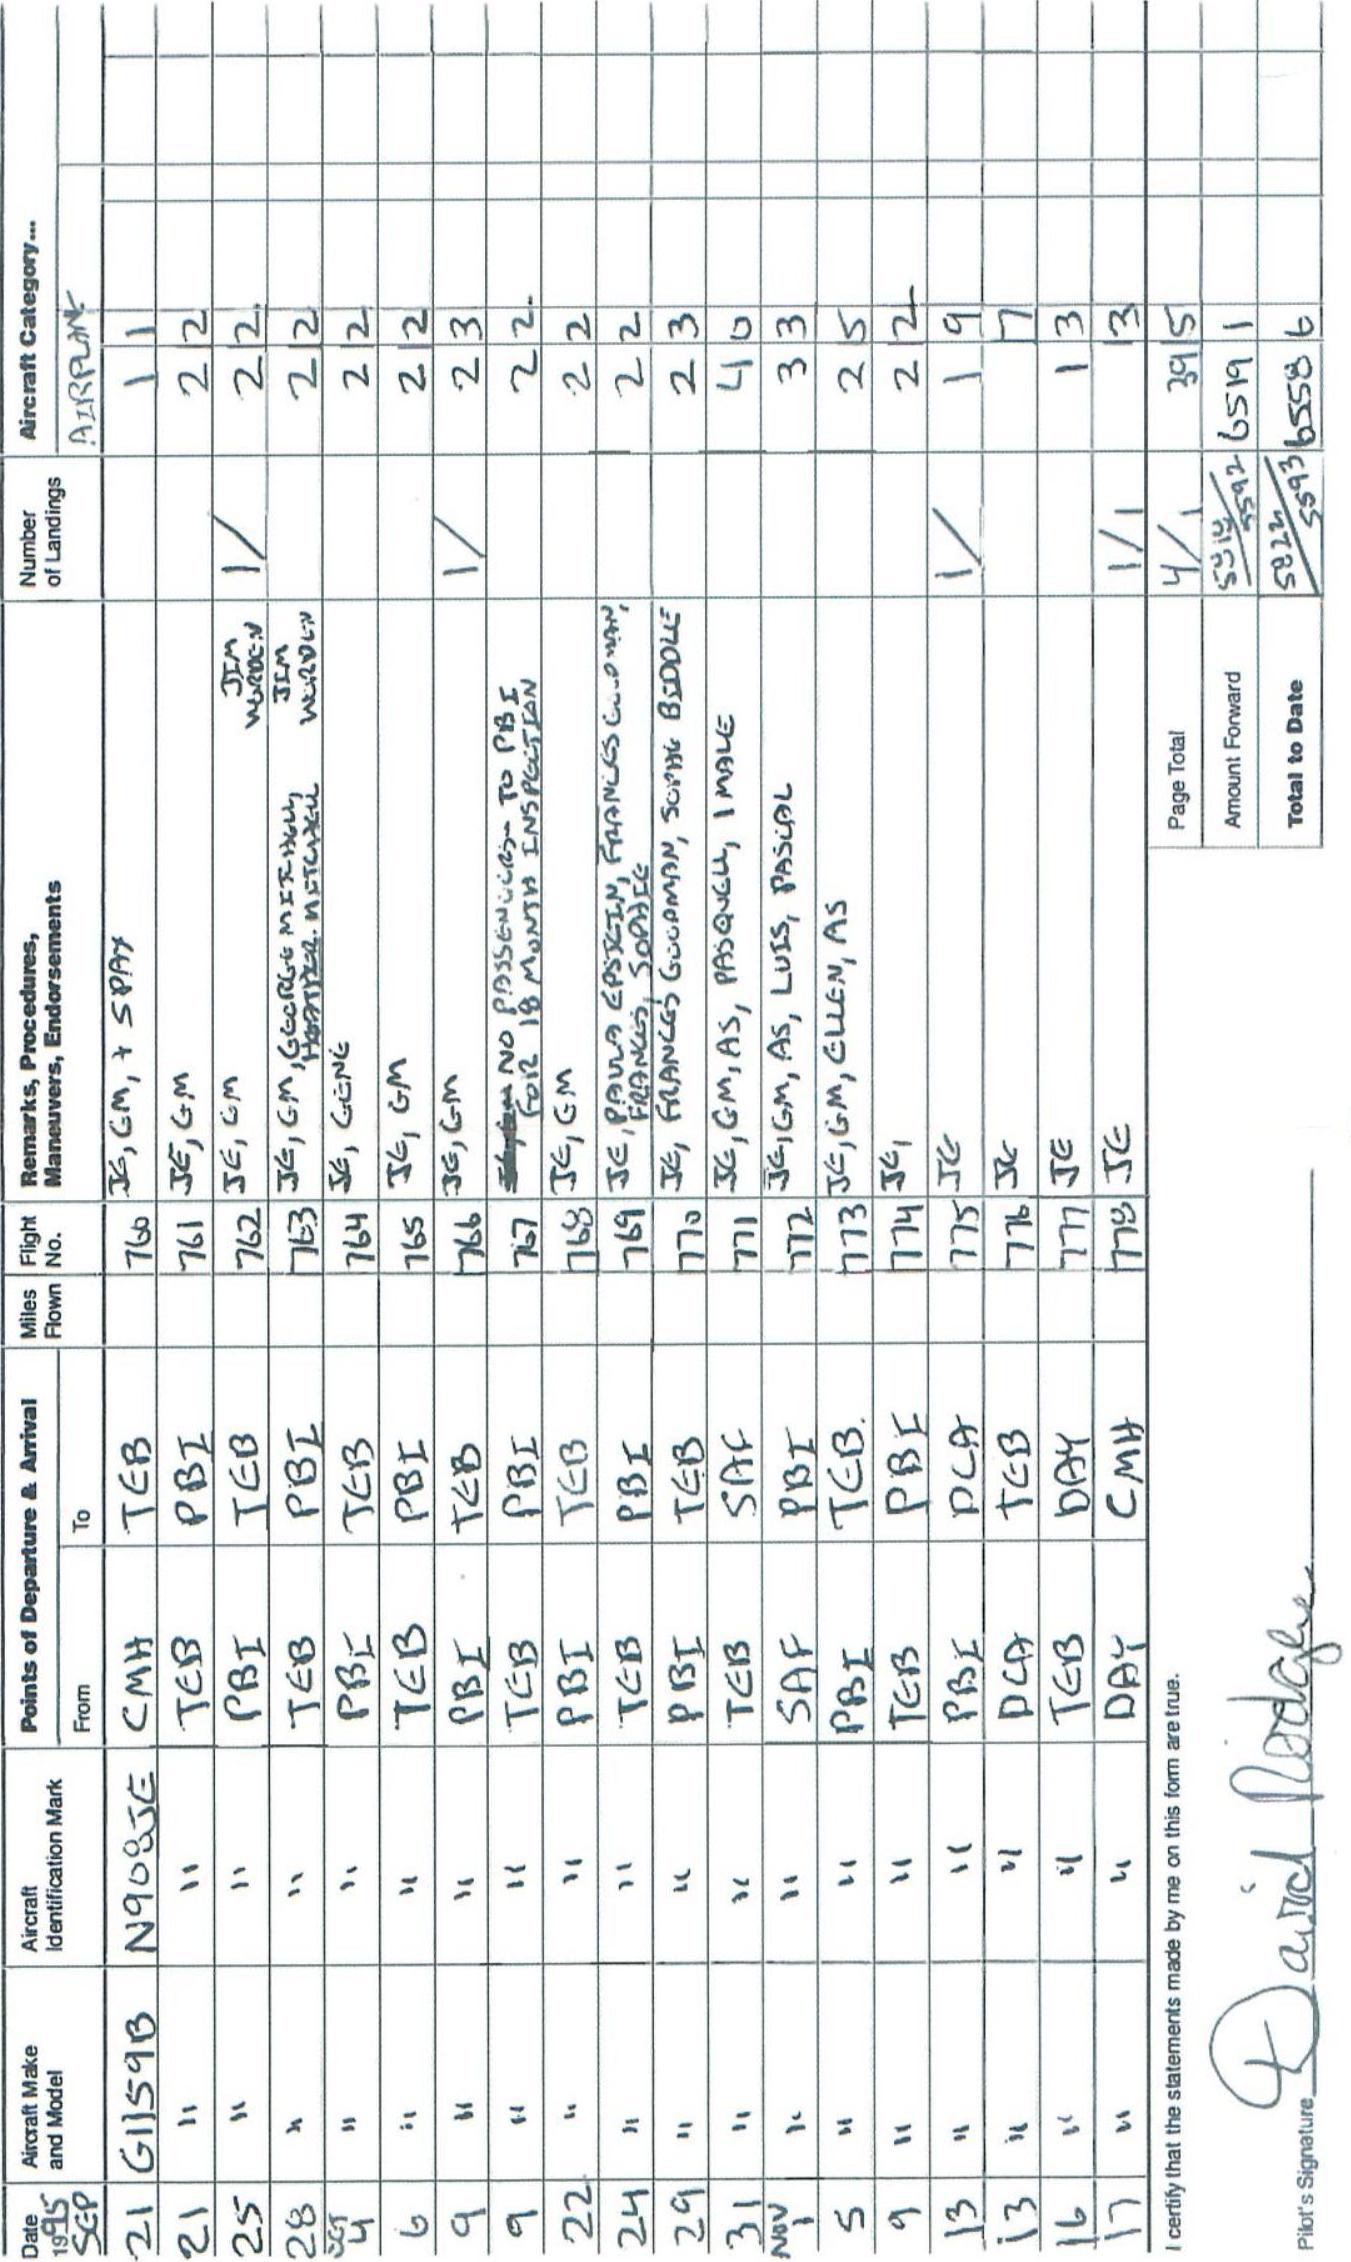 Date Aircraft Make and Model Aircraft Identification Mark Points of Departure & Arrival Miles Flown Flight No. Remarks, Procedures, Maneuvers, Endorsements Number of Landings Aircraft Category...
1995 SEP From To AIRPLANE
21 G1159B N908JE CMH TEB 760 JE, GM, + 5 PAX 1 1
21 " " TEB PBI 761 JE, GM 2 2
25 " " PBI TEB 762 JE, GM JIM WORDEN 1/ 2 2
28 " " TEB PBI 763 JE, GM, GEORGE MITCHELL, HEATHER MITCHELL JIM WORDEN 2 2
OCT 4 " " PBI TEB 764 JE, GENE 2 2
6 " " TEB PBI 765 JE, GM 2 2
9 " " PBI TEB 766 JE, GM 1/ 2 3
9 " " TEB PBI 767 NO PASSENGERS- TO PBI FOR 18 MONTH INSPECTION 2 2
22 " " PBI TEB 768 JE, GM 2 2
24 " " TEB PBI 769 JE, PAULA EPSTEIN, FRANCES GOODMAN, FRANCES, SOPHIE 2 2
29 " " PBI TEB 770 JE, FRANCES GOODMAN, SOPHIE BIDDLE 2 3
31 " " TEB SAF 771 JE, GM, AS, PASQUELL, 1 MALE 4 0
NOV 1 " " SAF PBI 772 JE, GM, AS, LUIS, PASCAL 3 3
5 " " PBI TEB 773 JE, GM, ELLEN, AS 2 5
9 " " TEB PBI 774 JE, 2 2
13 " " PBI DCA 775 JE 1/ 1 9
13 " " DCA TEB 776 JE 7
16 " " TEB DAY 777 JE 1 3
17 " " DAY CMH 778 JE 1/1 3
I certify that the statements made by me on this form are true. Page Total 4/1 39 5
Amount Forward 5592 6519 1
Pilot's Signature David Rodgers Total to Date 5822/5593 6558 6